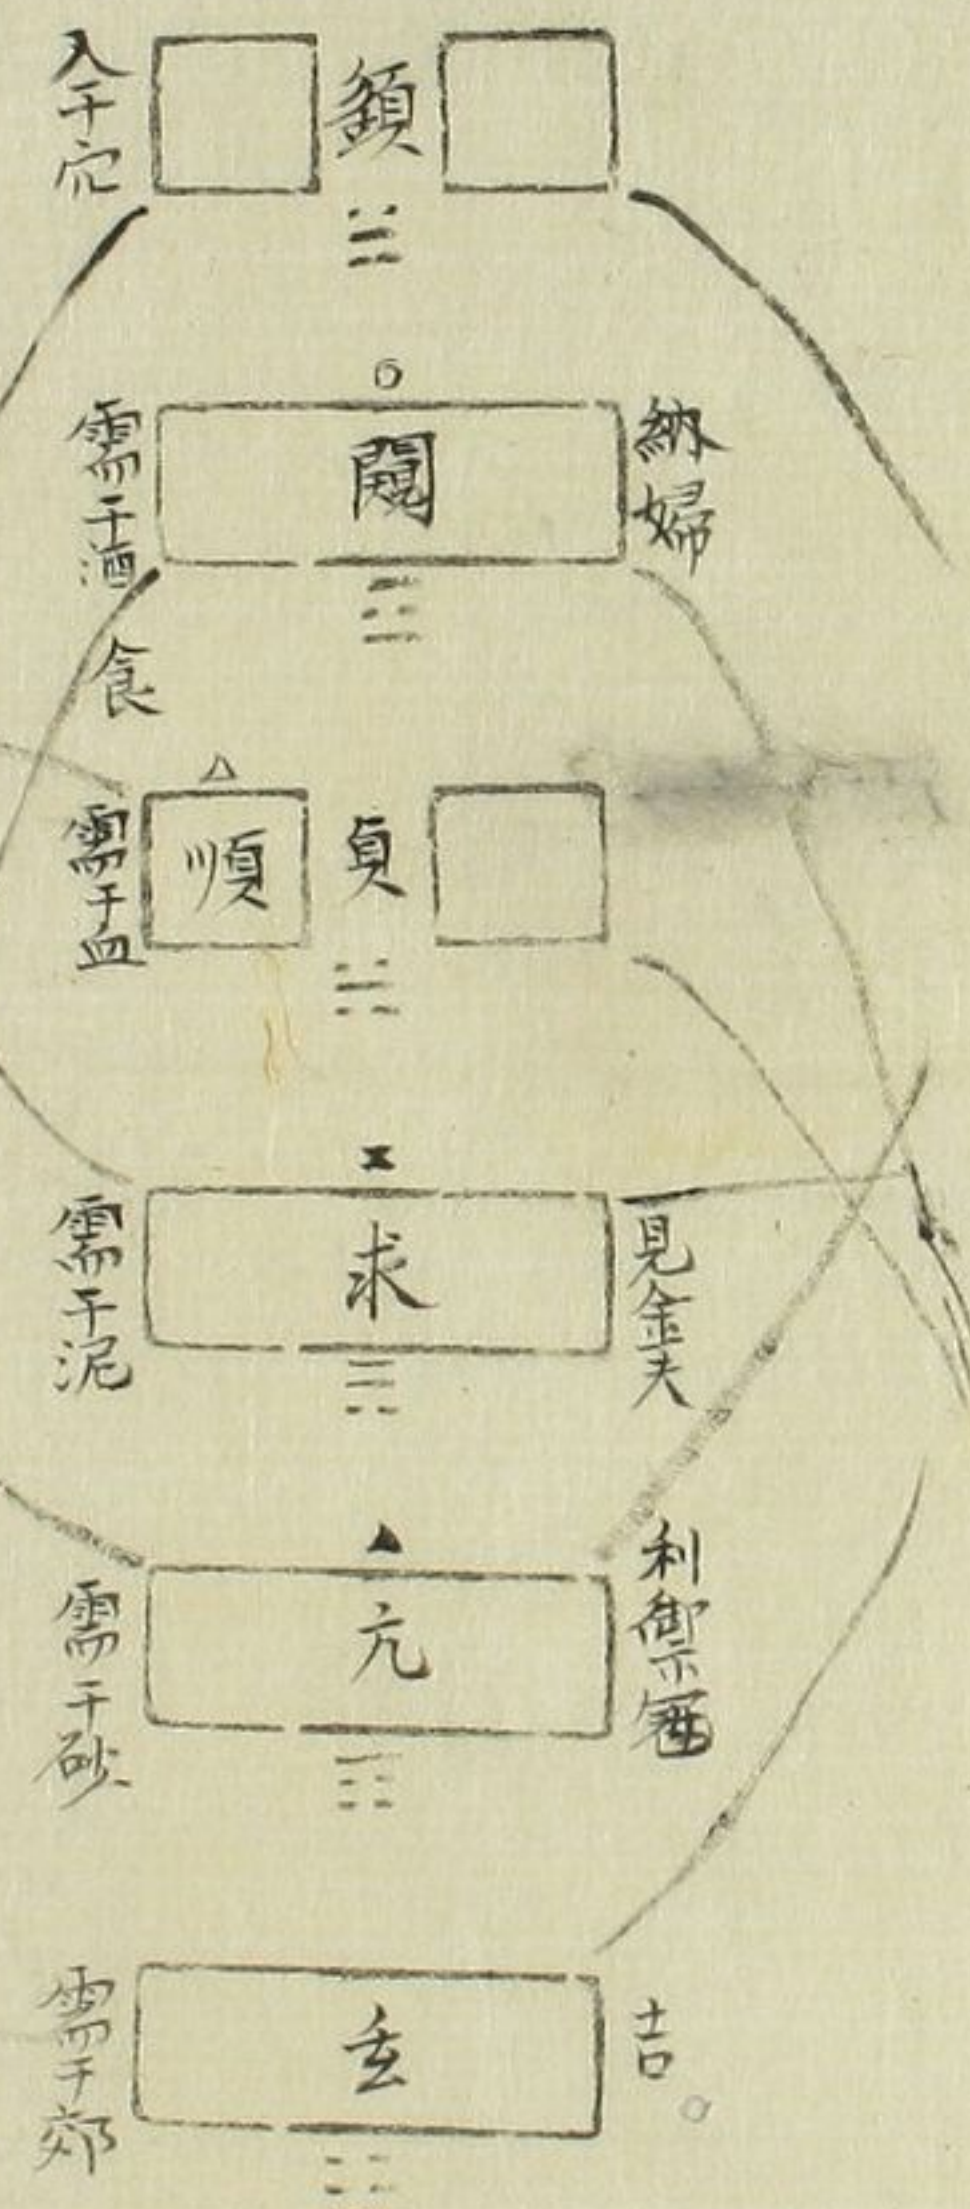 入于穴
需于酒食
納婦
需于血
順
貞
需于泥
求
見金夫
需于砂
亢
利禦寇
需于郊
玄
吉